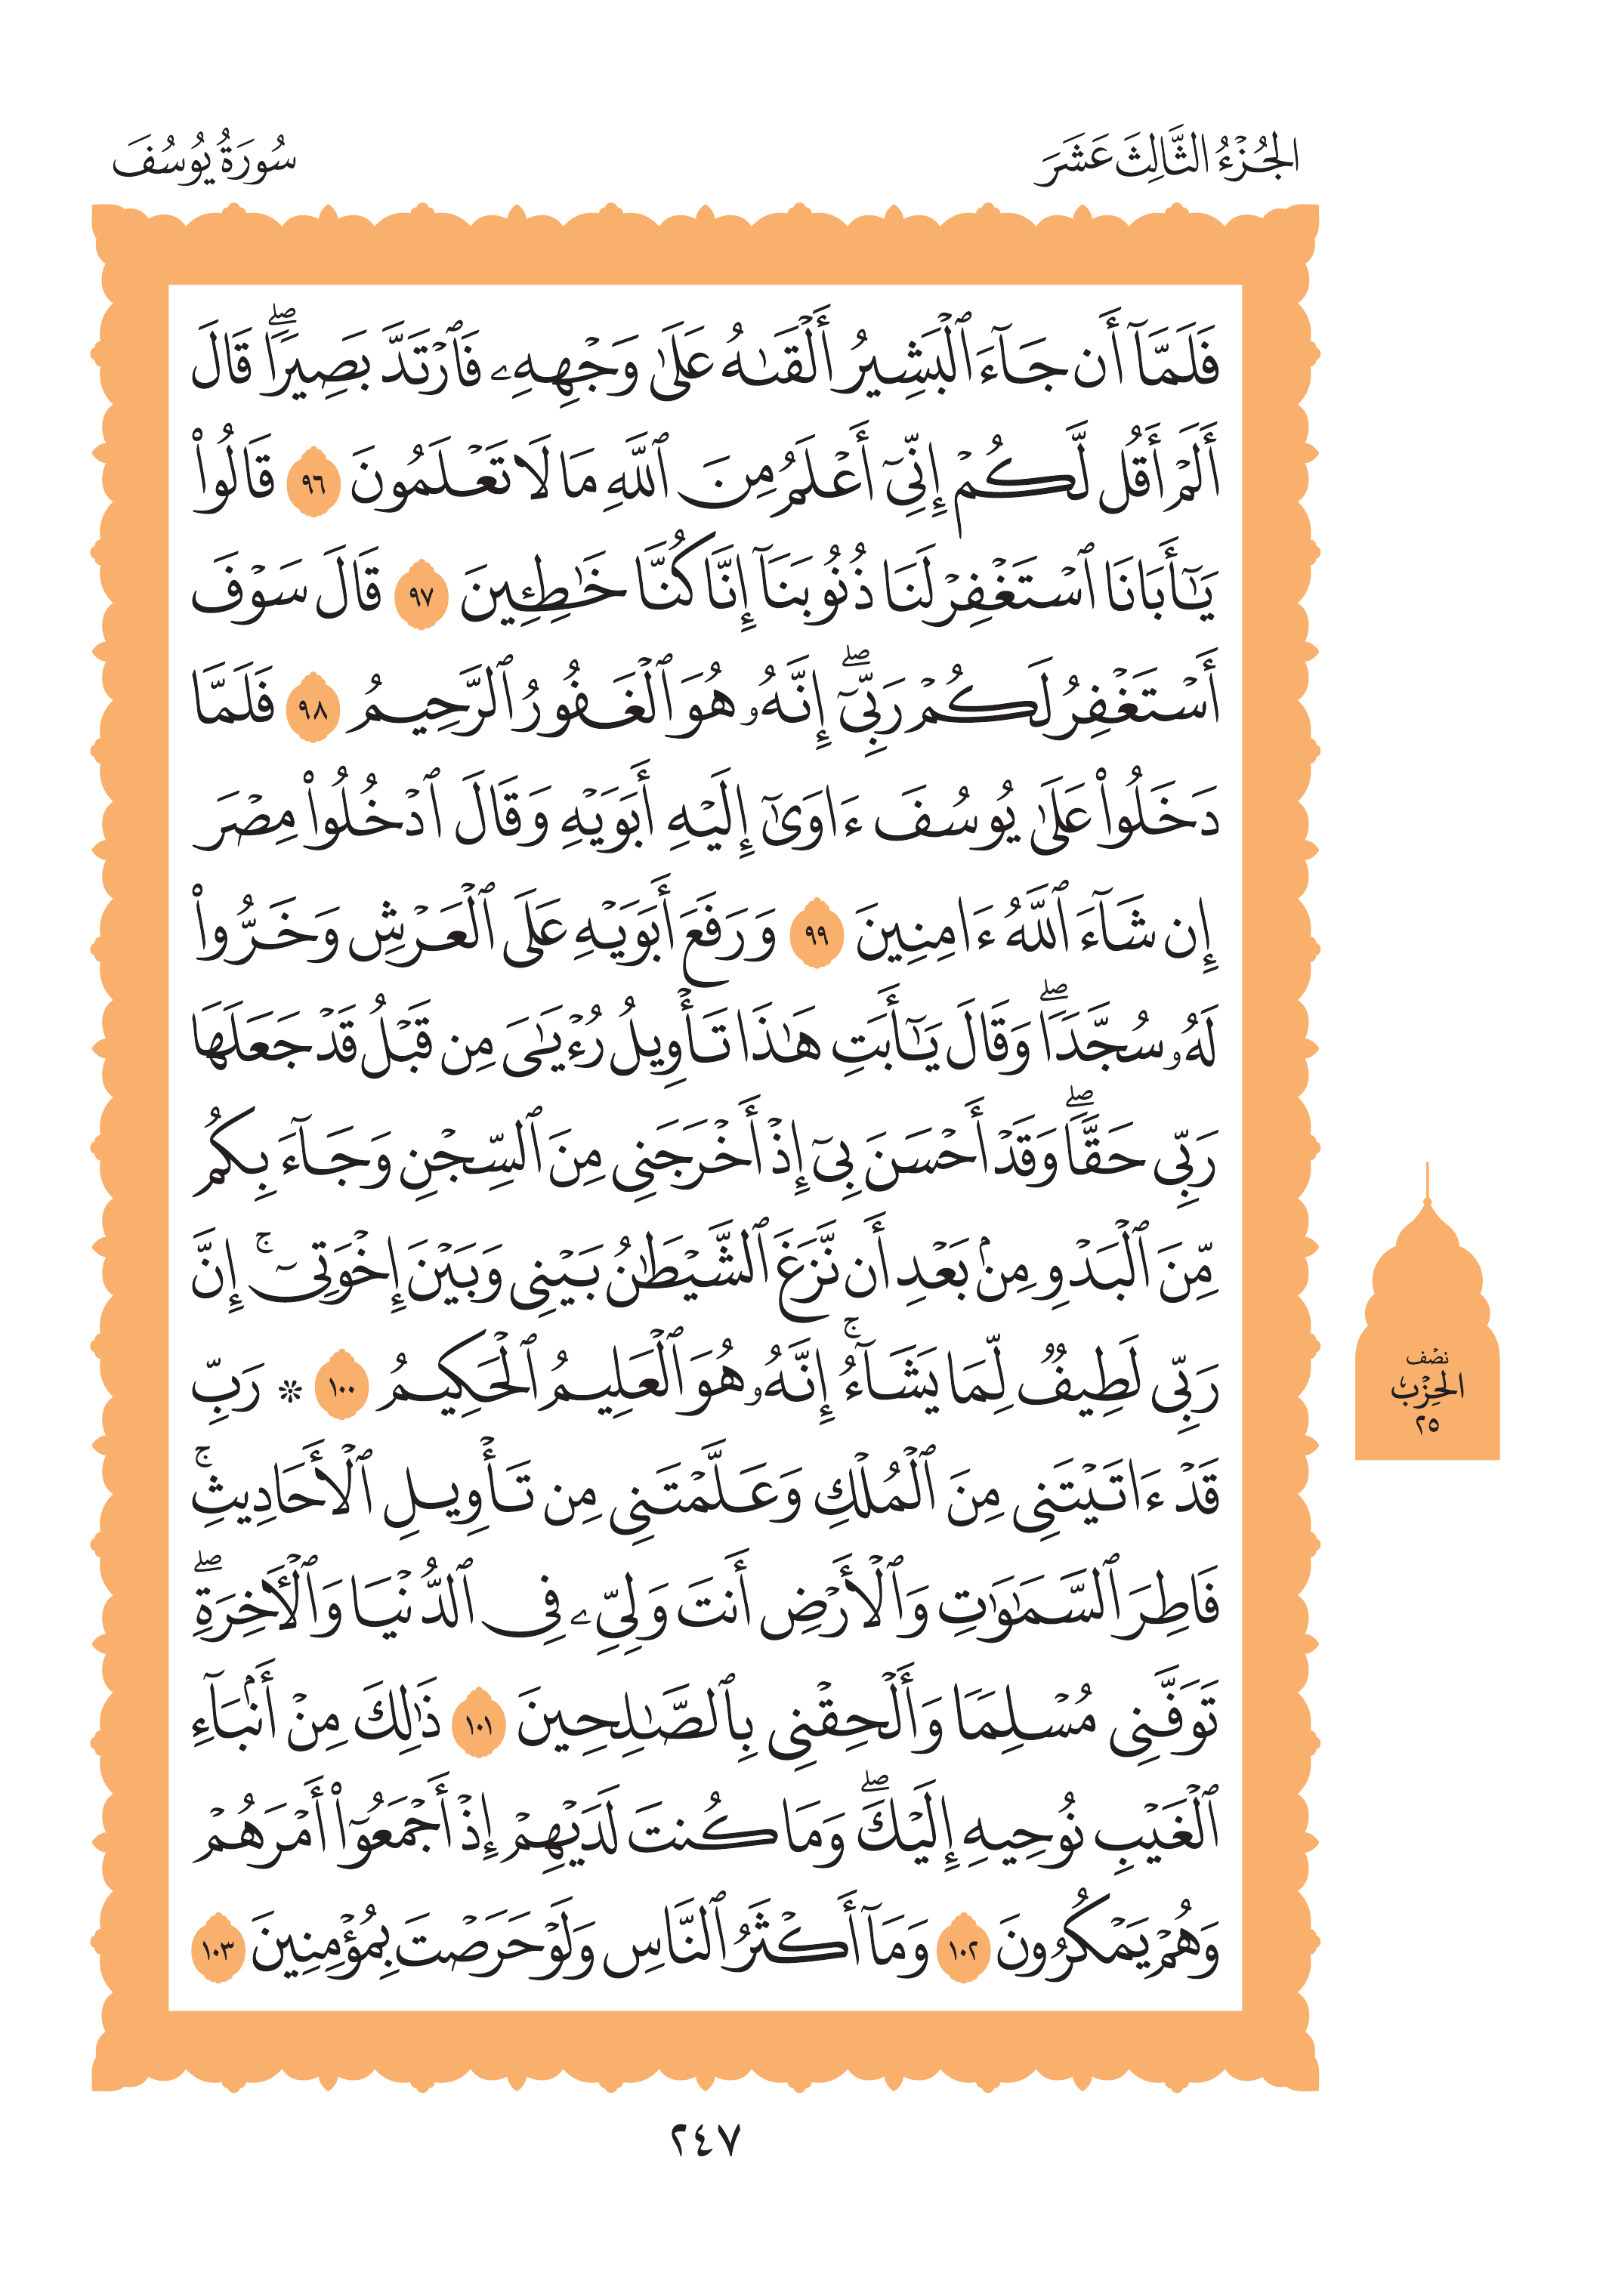 الجُزْءُ الثَّالِثَ عَشَرَ
سُورَةُ يُوسُفَ
فَلَمَّآ أَن جَآءَ ٱلْبَشِيرُ أَلْقَىٰهُ عَلَىٰ وَجْهِهِۦ فَٱرْتَدَّ بَصِيرًاۖ قَالَ
أَلَمْ أَقُل لَّكُمْ إِنِّىٓ أَعْلَمُ مِنَ ٱللَّهِ مَا لَا تَعْلَمُونَ ٩٦ قَالُوا۟
يَٰٓأَبَانَا ٱسْتَغْفِرْ لَنَا ذُنُوبَنَآ إِنَّا كُنَّا خَٰطِـِٔينَ ٩٧ قَالَ سَوْفَ
أَسْتَغْفِرُ لَكُمْ رَبِّىٓۖ إِنَّهُۥ هُوَ ٱلْغَفُورُ ٱلرَّحِيمُ ٩٨ فَلَمَّا
دَخَلُوا۟ عَلَىٰ يُوسُفَ ءَاوَىٰٓ إِلَيْهِ أَبَوَيْهِ وَقَالَ ٱدْخُلُوا۟ مِصْرَ
إِن شَآءَ ٱللَّهُ ءَامِنِينَ ٩٩ وَرَفَعَ أَبَوَيْهِ عَلَى ٱلْعَرْشِ وَخَرُّوا۟
لَهُۥ سُجَّدًاۖ وَقَالَ يَٰٓأَبَتِ هَٰذَا تَأْوِيلُ رُءْيَٰىَ مِن قَبْلُ قَدْ جَعَلَهَا
رَبِّى حَقًّاۖ وَقَدْ أَحْسَنَ بِىٓ إِذْ أَخْرَجَنِى مِنَ ٱلسِّجْنِ وَجَآءَ بِكُم
مِّنَ ٱلْبَدْوِ مِنۢ بَعْدِ أَن نَّزَغَ ٱلشَّيْطَٰنُ بَيْنِى وَبَيْنَ إِخْوَتِىٓۚ إِنَّ
رَبِّى لَطِيفٌ لِّمَا يَشَآءُۚ إِنَّهُۥ هُوَ ٱلْعَلِيمُ ٱلْحَكِيمُ ١٠٠ ❊ رَبِّ
قَدْ ءَاتَيْتَنِى مِنَ ٱلْمُلْكِ وَعَلَّمْتَنِى مِن تَأْوِيلِ ٱلْأَحَادِيثِۚ
فَاطِرَ ٱلسَّمَٰوَٰتِ وَٱلْأَرْضِ أَنتَ وَلِىِّۦ فِى ٱلدُّنْيَا وَٱلْـَٔاخِرَةِۖ
تَوَفَّنِى مُسْلِمًا وَأَلْحِقْنِى بِٱلصَّٰلِحِينَ ١٠١ ذَٰلِكَ مِنْ أَنۢبَآءِ
ٱلْغَيْبِ نُوحِيهِ إِلَيْكَۖ وَمَا كُنتَ لَدَيْهِمْ إِذْ أَجْمَعُوٓا۟ أَمْرَهُمْ
وَهُمْ يَمْكُرُونَ ١٠٢ وَمَآ أَكْثَرُ ٱلنَّاسِ وَلَوْ حَرَصْتَ بِمُؤْمِنِينَ ١٠٣
نصْف
الحِزْب
٢٥
٢٤٧